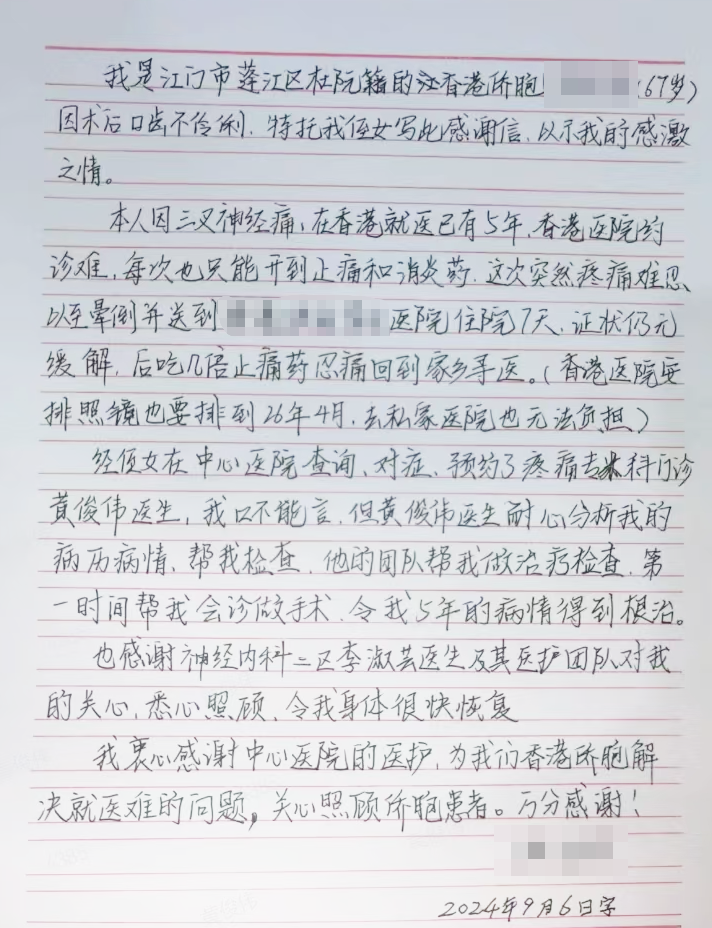 我是江门市蓬江区杜阮籍的香港侨胞 (67岁)
因术后口齿不伶俐，特托我侄女写此感谢信，以示我的感激
之情。
本人因三叉神经痛，在香港就医已有5年，香港医院约
诊难，每次也只能开到止痛和消炎药，这次突然疼痛难忍
以至晕倒并送到 医院住院7天，证状仍无
缓解，后吃几倍止痛药忍痛回到家乡寻医。(香港医院要
排照镜也要排到26年4月，去私家医院也无法负担)
经侄女在中心医院查询、对症、预约了疼痛专科门诊
黄俊伟医生，我口不能言，但黄俊伟医生耐心分析我的
病历病情，帮我检查，他的团队帮我做治疗检查，第
一时间帮我会诊做手术，令我5年的病情得到根治。
也感谢神经内科二区李淑芸医生及其医护团队对我
的关心，悉心照顾，令我身体很快恢复
我衷心感谢中心医院的医护，为我们香港侨胞解
决就医难的问题，关心照顾侨胞患者。万分感谢！
2024年9月6日字